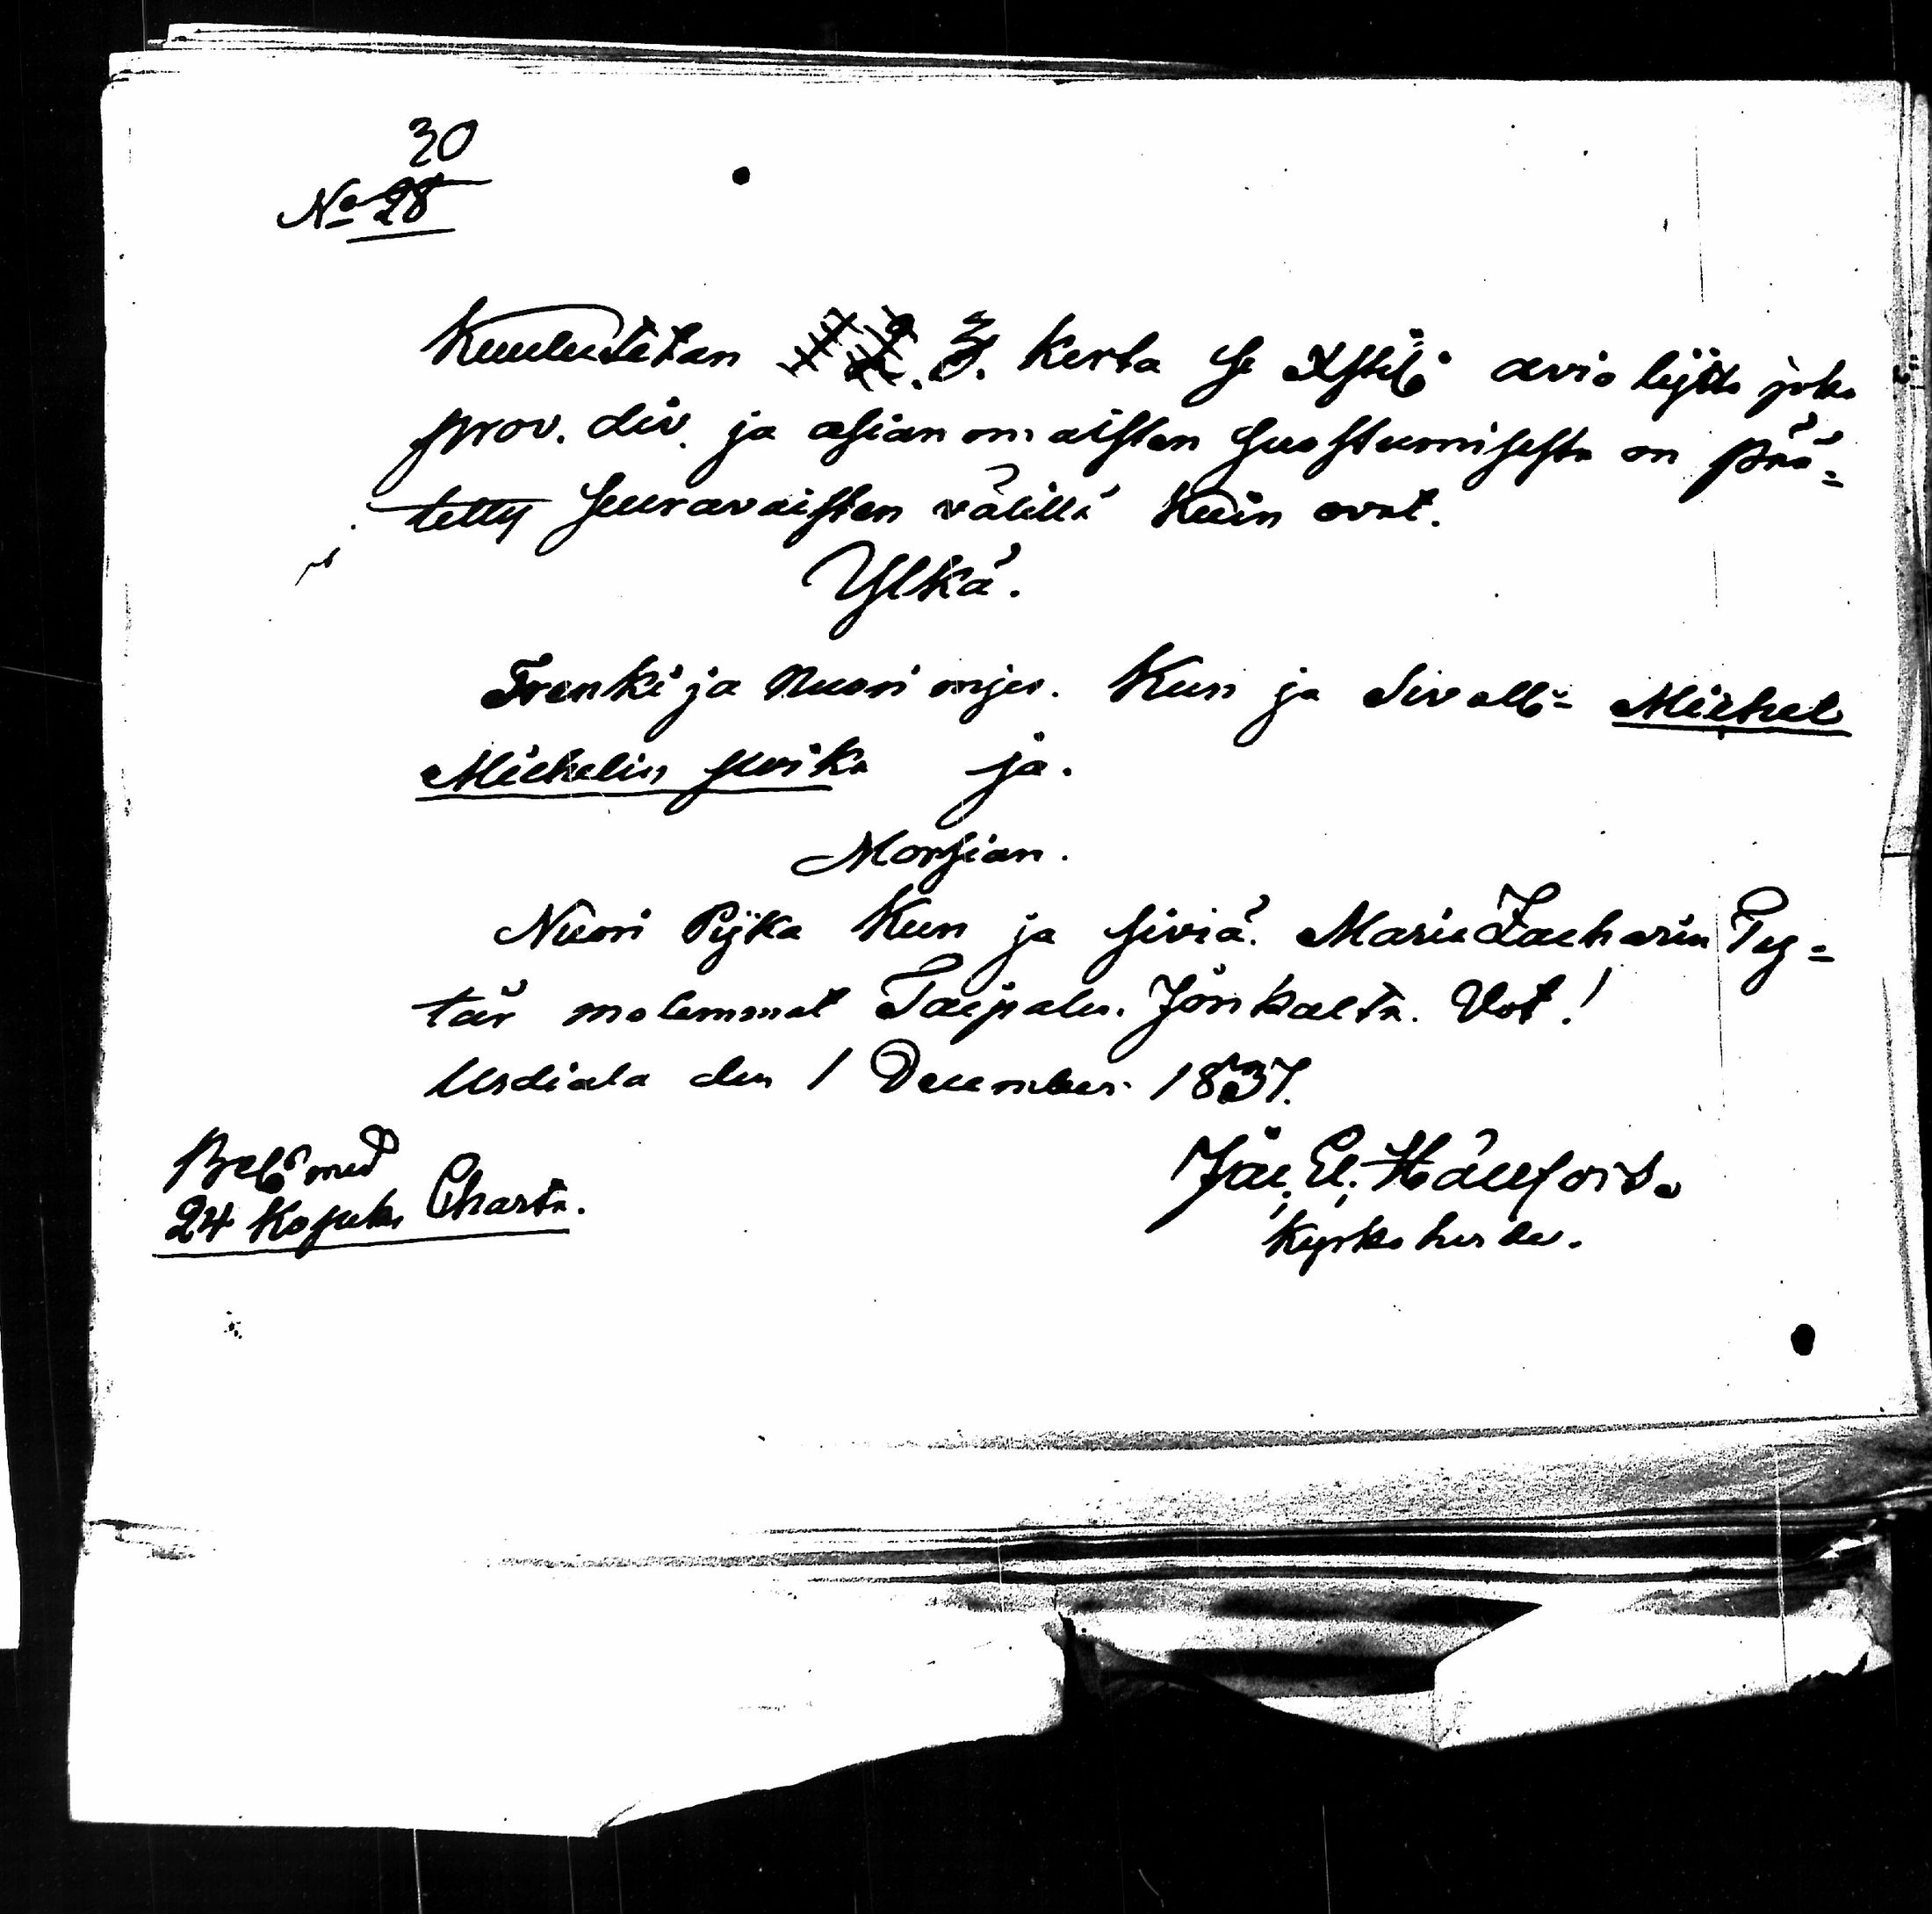 30
No 28
Kuulutetan 1. 2. 3. kerta se Xstil: avio lijtto joka
prov. div. ja asianomaisten suostumisesta on pää=
tetty seuravaisten välillä kuin ovat.
Ylkä.
Trenki ja Nuori mjes. Kun ja Sivell= Michel
Michelin poika ja.
Morsian.
Nuori Pijka Kun ja siviä. Maria Zacharin Ty=
tär molemmat Taipale. Vot!
Urdiala den 1 December 1837.
Bel: med
24 Kopeks Charta.
Hällfors.
Kyrkoherde.